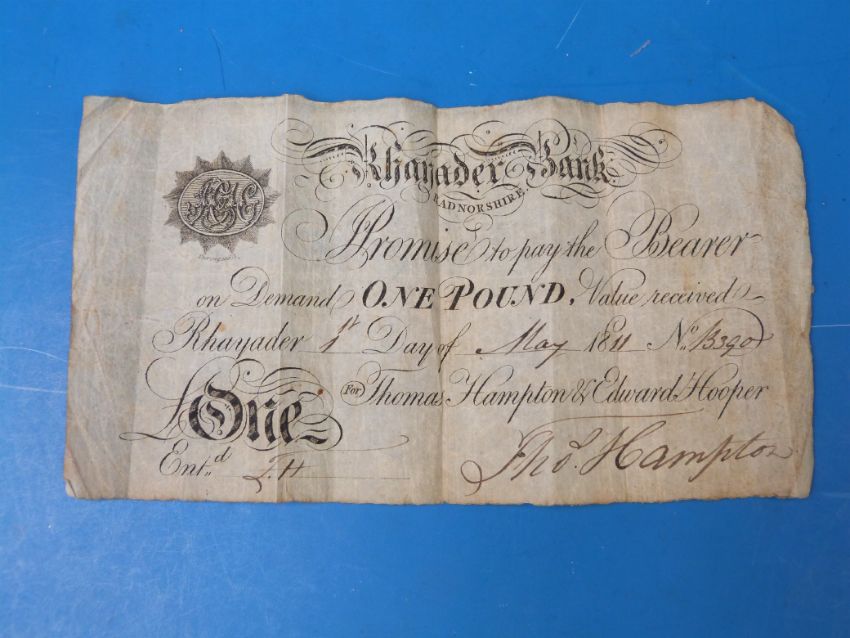 Rhayader Bank
RADNORSHIRE.
I Promise to pay the Bearer
on Demand ONE POUND, Value received
Rhayader 1st Day of May 1811 No. B390
For Thomas Hampton & Edward Hooper
£One
Ent.d T.H
Tho.s Hampton